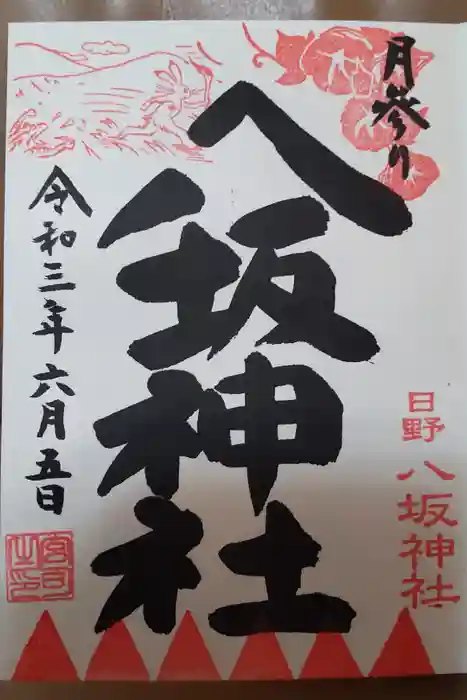 月参り
八坂神社
日野
八坂神社
令和三年六月五日
宮司之印